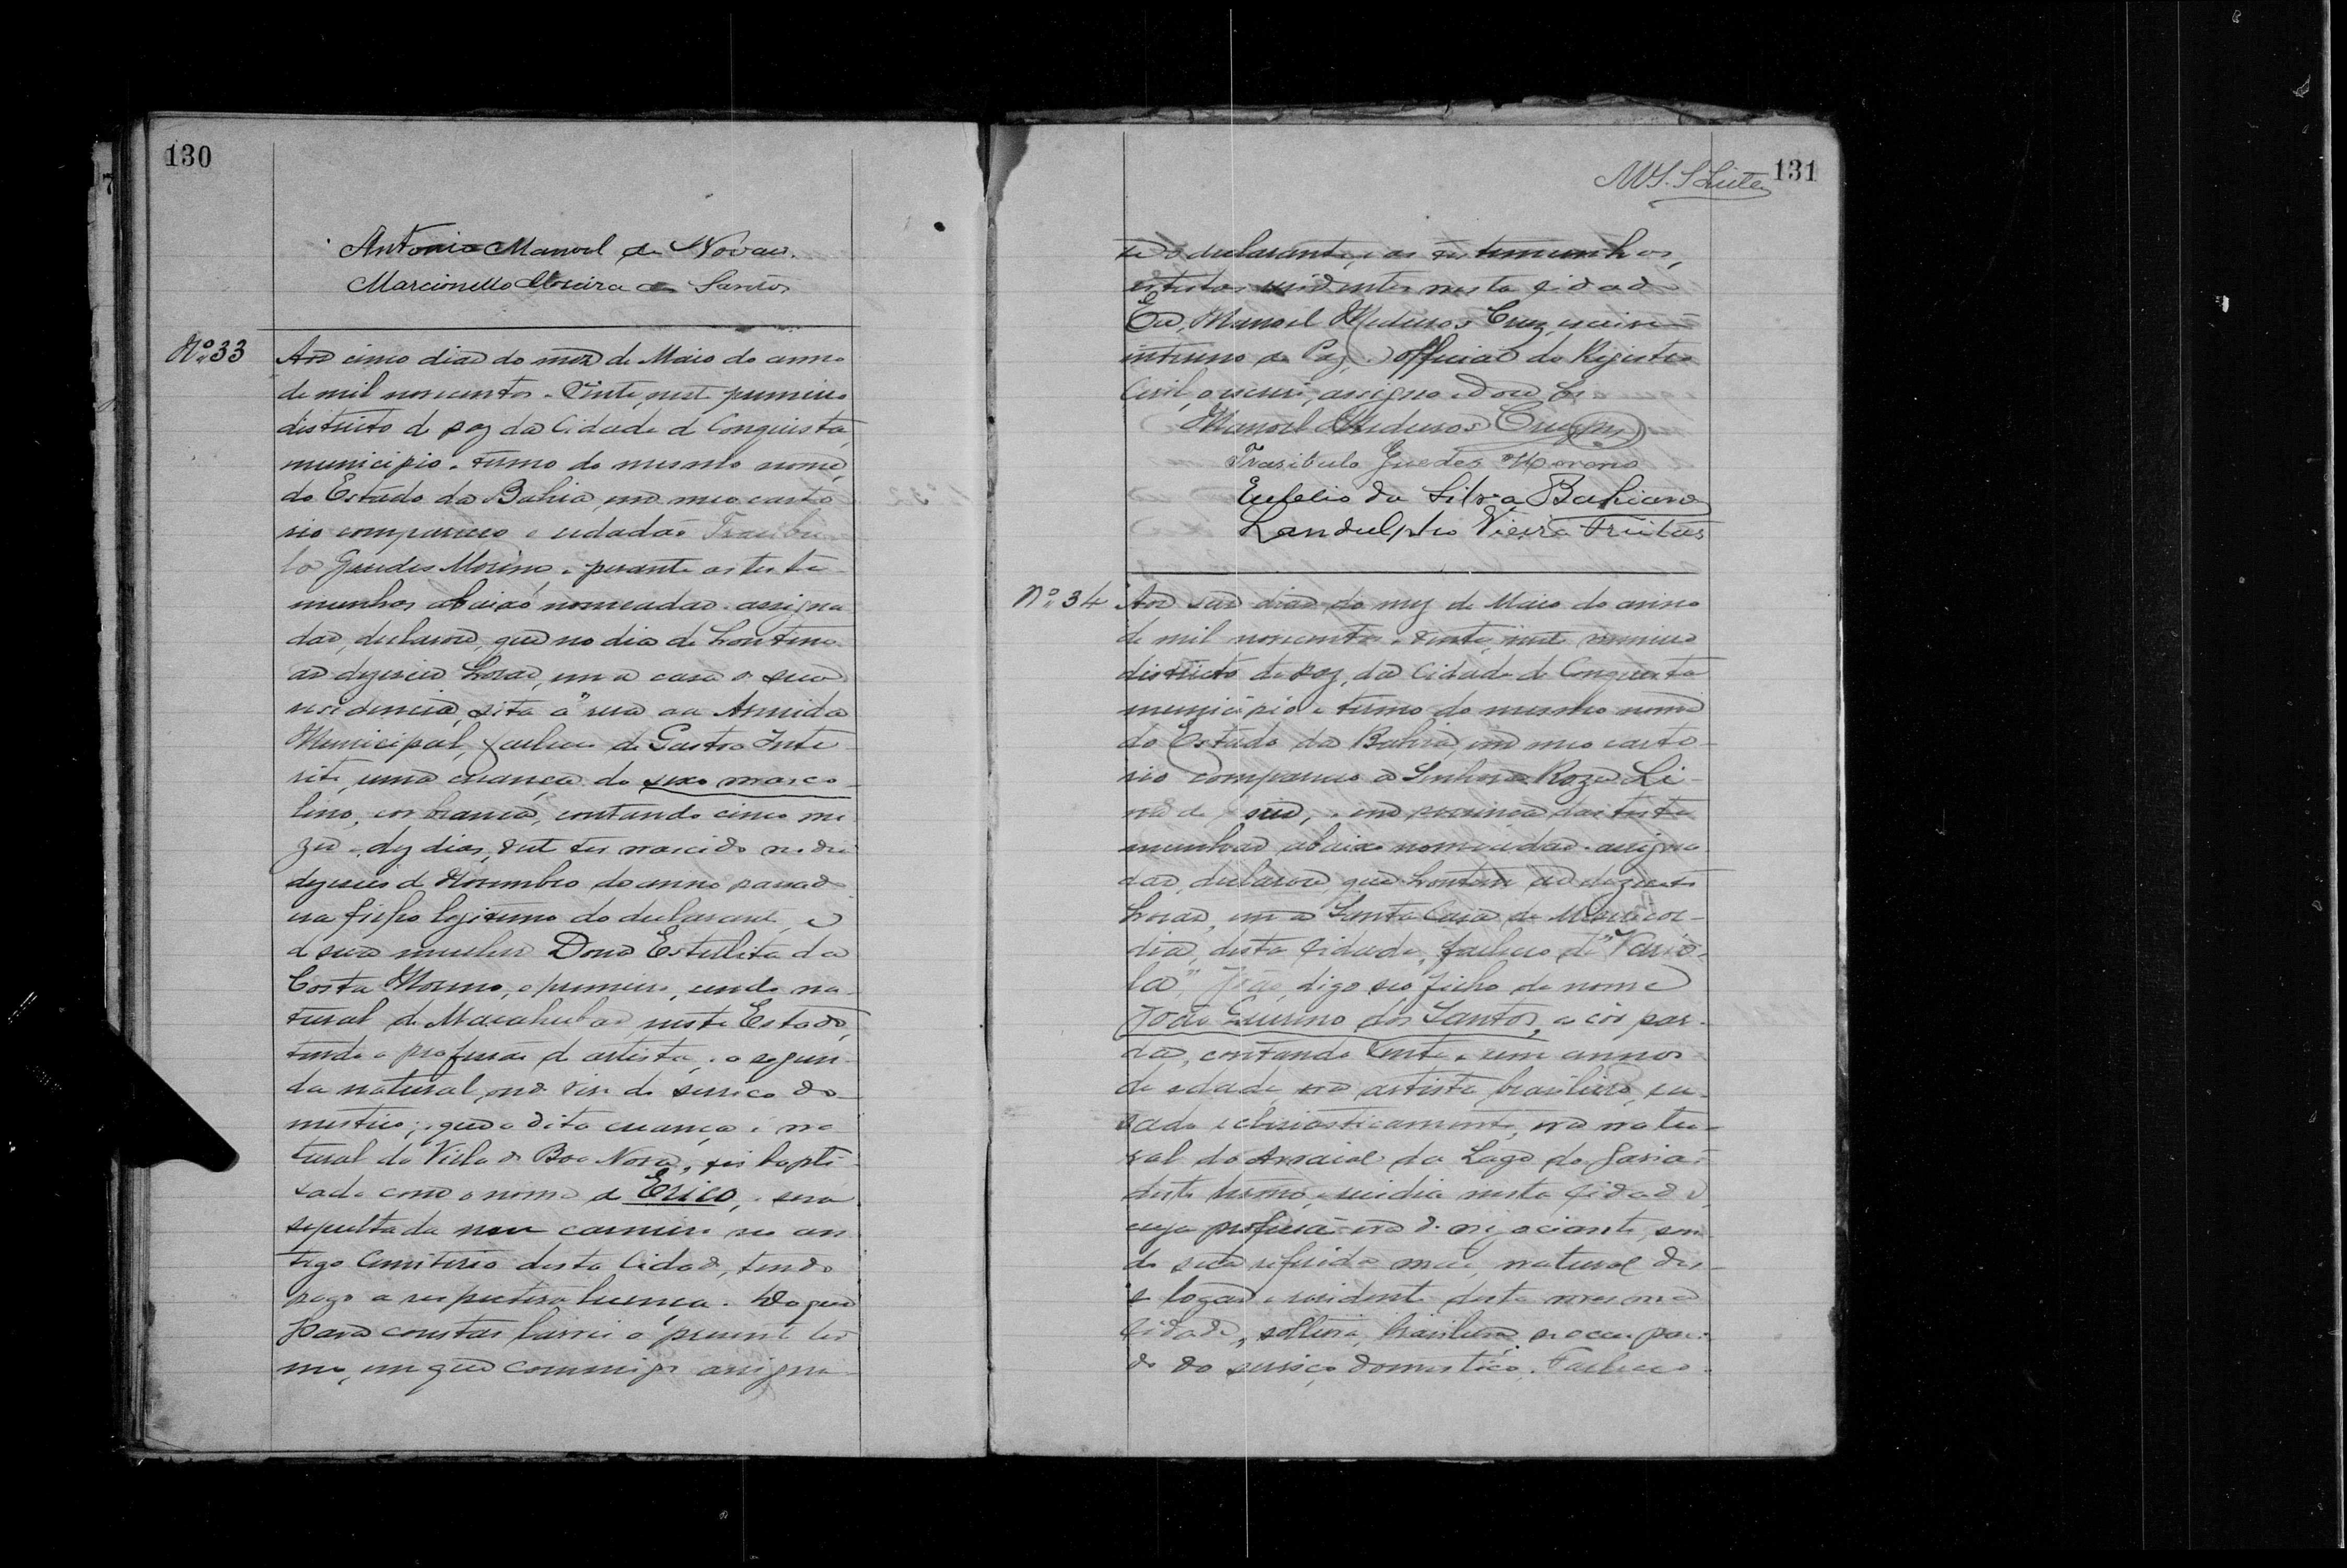 130
Antonio Manoel de Novaes.
Marcionillo Moreira dos Santos
Nº 33
Aos cinco dias do mez de Maio do anno
de mil novecentos e vinte, neste primeiro
districto de paz da Cidade de Conquista,
municipio e termo do mesmo nome,
do Estado da Bahia, em meo carto
rio compareceo o cidadão Trasibu
lo Guedes Moreno e perante as teste
munhas abaixo nomeadas e assigna
das, declarou, que no dia de hontem
as dezeseis horas, em a casa de sua
residencia, sita á rua da Avenida
Municipal, falleceo de Gastro Inte
rite, uma creança do sexo mascu
lino, cor branca, contando cinco me
zes e dez dias, ter nascido no dia
dezeseis de Novembro do anno passado
era filho legitimo do declarante, e
de sua mulher Dona Estellita da
Costa Moreno, o primeiro, sendo na
tural de Macahubas, neste Estado,
tendo a profissão de artista, e a segun
da natural, que vive do serviço do
mestico; e que a dita creança é na
tural da Villa de Boa Nova, foi bapti
sada com o nome de Erico, e sera
sepultada num carneiro no an
tigo Cemiterio desta Cidade, tendo
pago a respectiva licença. Do que
para constar lavrei o presente ter
mo, em que commigo assigna
131
te o declarante, e as testemunhas,
artistas residentes nesta cidade
Eu, Manoel Medeiros Cruz, escrivão
interino de Paz, e official do Registro
Civil, o escrevi, assigno e dou fé
Manoel Medeiros Cruz
Trasibulo Guedes Moreno
Eufelio da Silva Bahiano
Landulpho Vieira Freitas
Nº 34
Aos seis dias do mez de Maio do anno
de mil novecentos e vinte, neste primeiro
districto de paz, da Cidade de Conquista
municipio e termo do mesmo nome
do Estado da Bahia, em meo carto
rio compareceo a Senhora Roza Li
na de, e em presença das teste
munhas abaixo nomeadas e assigna
das, declarou, que hontem as dezesete
horas, em a Santa Casa de Misericor
dia, desta Cidade, falleceo de "Vario
la", João, digo seo filho de nome
João Guerino dos Santos, a côr par
da, contando vinte e um annos
de edade, era artista, brasileiro, ca
sado eclesiasticamente, era natu
ral do Arraial da Lage do
deste termo, e residia nesta Cidade,
cuja profissão era de negociante, sen
do sua referida mãe, natural des
te logar e residente desta mesma
Cidade, solteira, brasileira, se occupan
do do serviço domestico. Falleceo